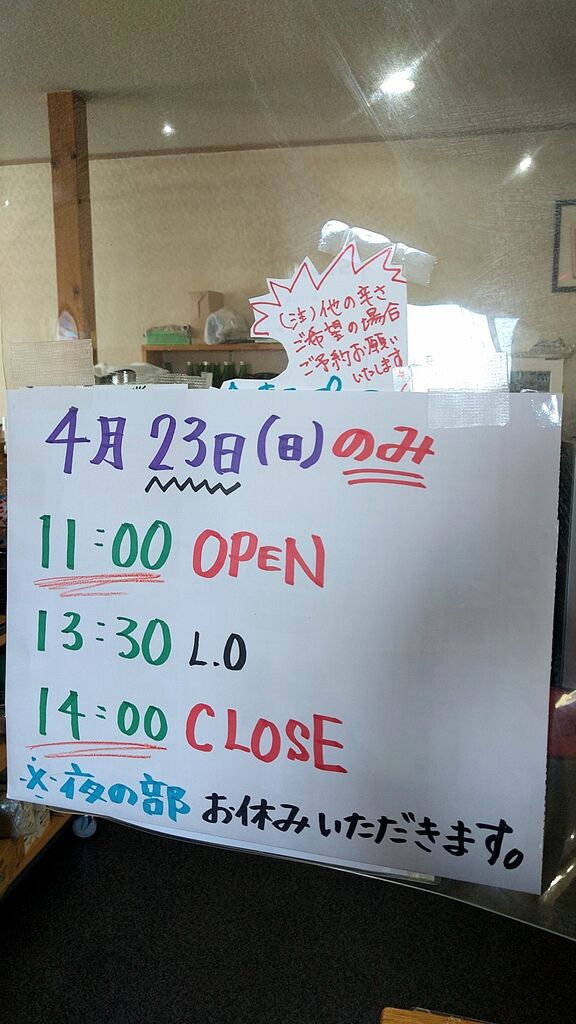 (注)他の辛さ
ご希望の場合
ご予約お願い
いたします
4月23日(日)のみ
11:00 OPEN
13:30 L.O
14:00 CLOSE
※夜の部 お休みいただきます。